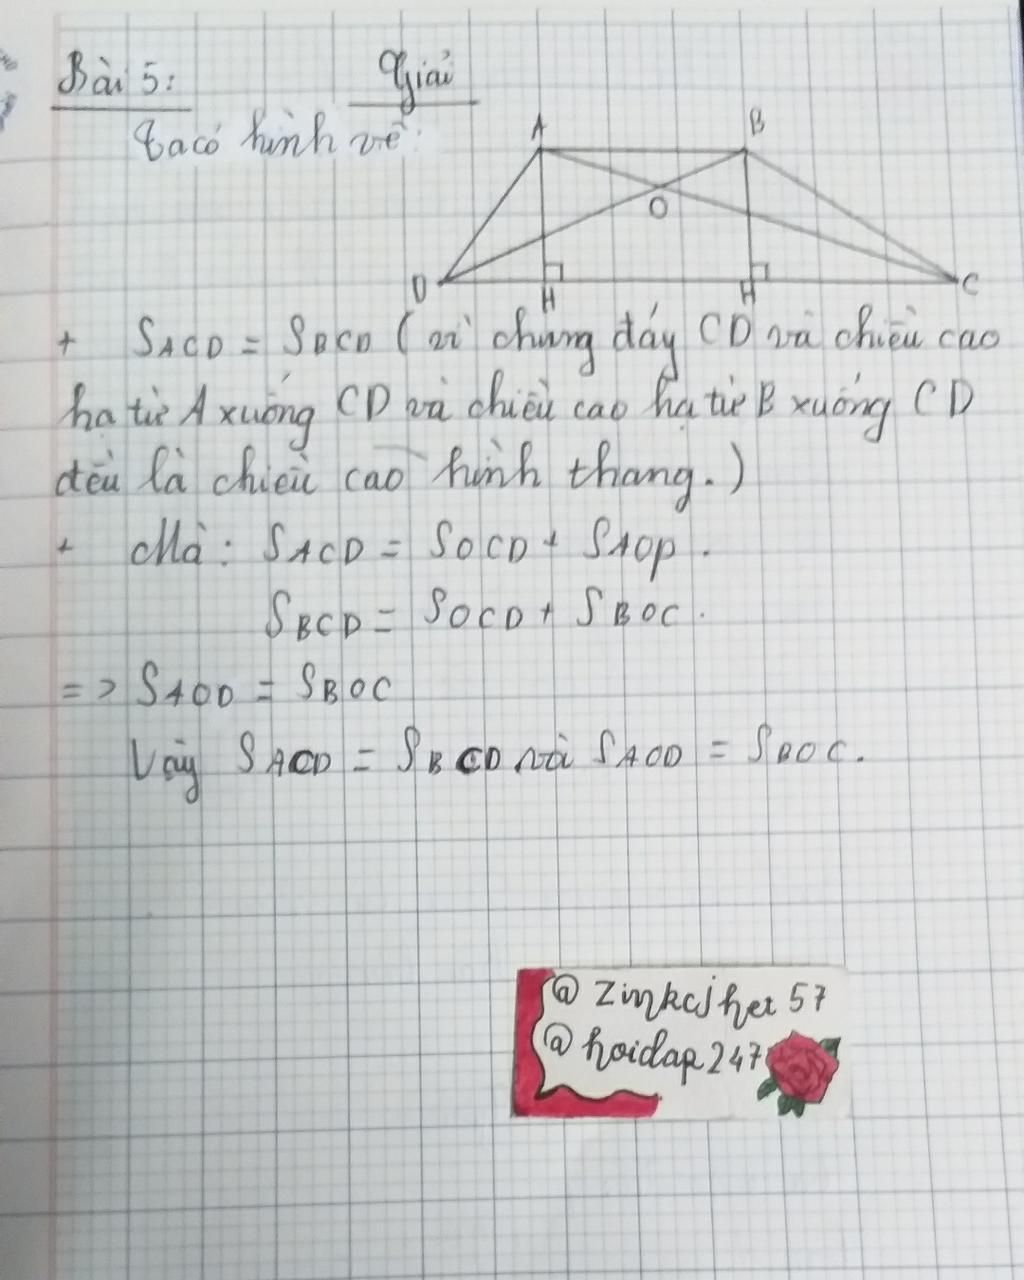 Bài 5:
Giải
Ta có hình vẽ:
A
B
O
D
H
H
C
+ SACD = SBCD (vì chung đáy CD và chiều cao
hạ từ A xuống CD và chiều cao hạ từ B xuống CD
đều là chiều cao hình thang.)
+ Mà: SACD = SOCD + SAOD.
SBCD = SOCD + SBOC.
=> SAOD = SBOC
Vậy SACD = SBCD và SAOD = SBOC.
@ Zinkcjhet 57
@ hoidap 247